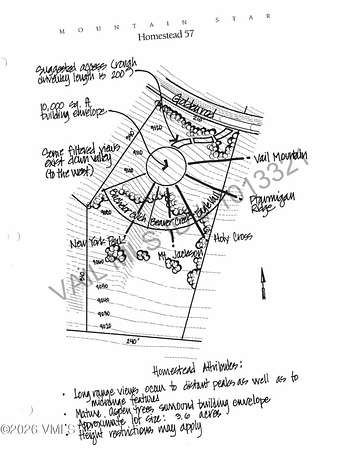 MOUNTAIN STAR
Homestead 57
Suggested access (rough
driveway length is 200')
10,000 sq. ft.
building envelope
Some filtered views
exist down valley
(to the west)
9120
9100
Vail Mountain
Ptarmigan
Ridge
Holy Cross
New York Peak
Mt. Jackson
Bachelor Gulch
Beaver Creek
9060
9050
9040
9030
9020
240'
Homestead Attributes:
• Long range views occur to distant peaks as well as to
midrange features
• Mature aspen trees surround building envelope
• Approximate lot size: 3.6 acres
• Height restrictions may apply
VAIL MLS
©2026 VMLS